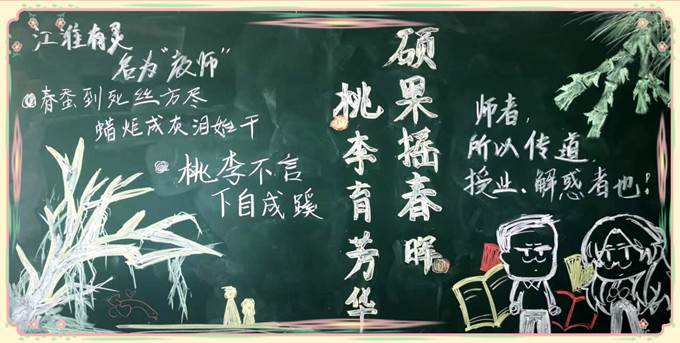 江淮有灵
名为“教师”
春蚕到死丝方尽
蜡炬成灰泪始干
桃李不言
下自成蹊
硕果摇春晖
桃李育芳华
师者,
所以传道,
授业、解惑者也!